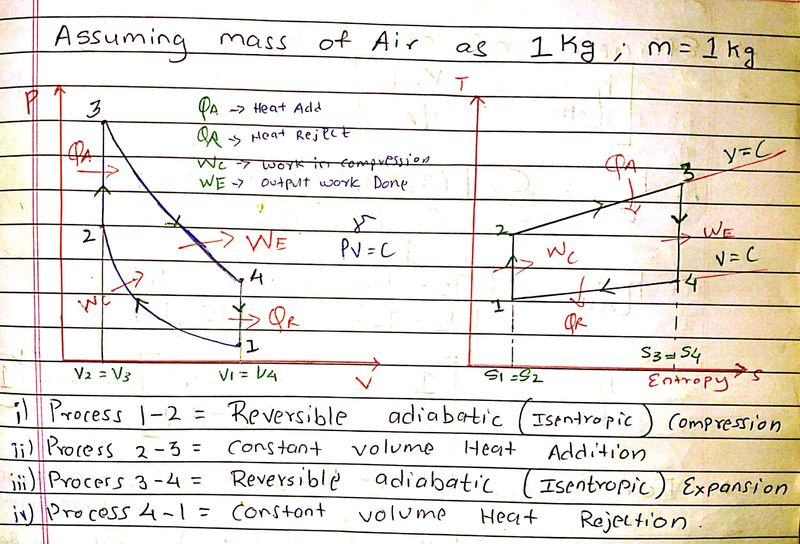 Assuming mass of Air as 1 kg; m = 1 kg
P
3
QA → Heat Add
QR → Heat Reject
WC → work in compression
WE → output work Done
QA
2
WE
PV^γ = C
4
WC
QR
1
V2 = V3
V1 = V4
V
T
QA
3
V = C
2
WC
WE
V = C
1
4
QR
S1 = S2
S3 = S4
Entropy
S
i) Process 1-2 = Reversible adiabatic (Isentropic) Compression
ii) Process 2-3 = Constant volume Heat Addition
iii) Process 3-4 = Reversible adiabatic (Isentropic) Expansion
iv) Process 4-1 = Constant volume Heat Rejection.